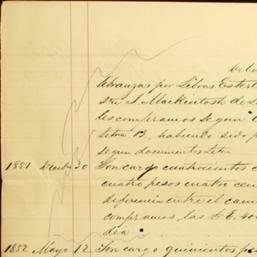 Debi
libranzas por Libras Esterl
Sre J. Mackintosh de L
les compramos segun
letra B, habiendo sido p
segun documentos letra
1851 Dicibe 30 Son cargo cuatrocientos c
cuatro pesos cuatro cen
diferencia entre el cam
compramos las £ 400
dia
1852 Mayo 12 Son cargo quinientos pe